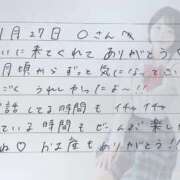 1月27日 〇さんへ
いに来てくれて ありがとう
月頃からずっと気になって
ごく うれしかった
話してる時間も イチャイチャ
ている時間も ぜーんぶ楽し
ね♡ お土産もありがとう!!